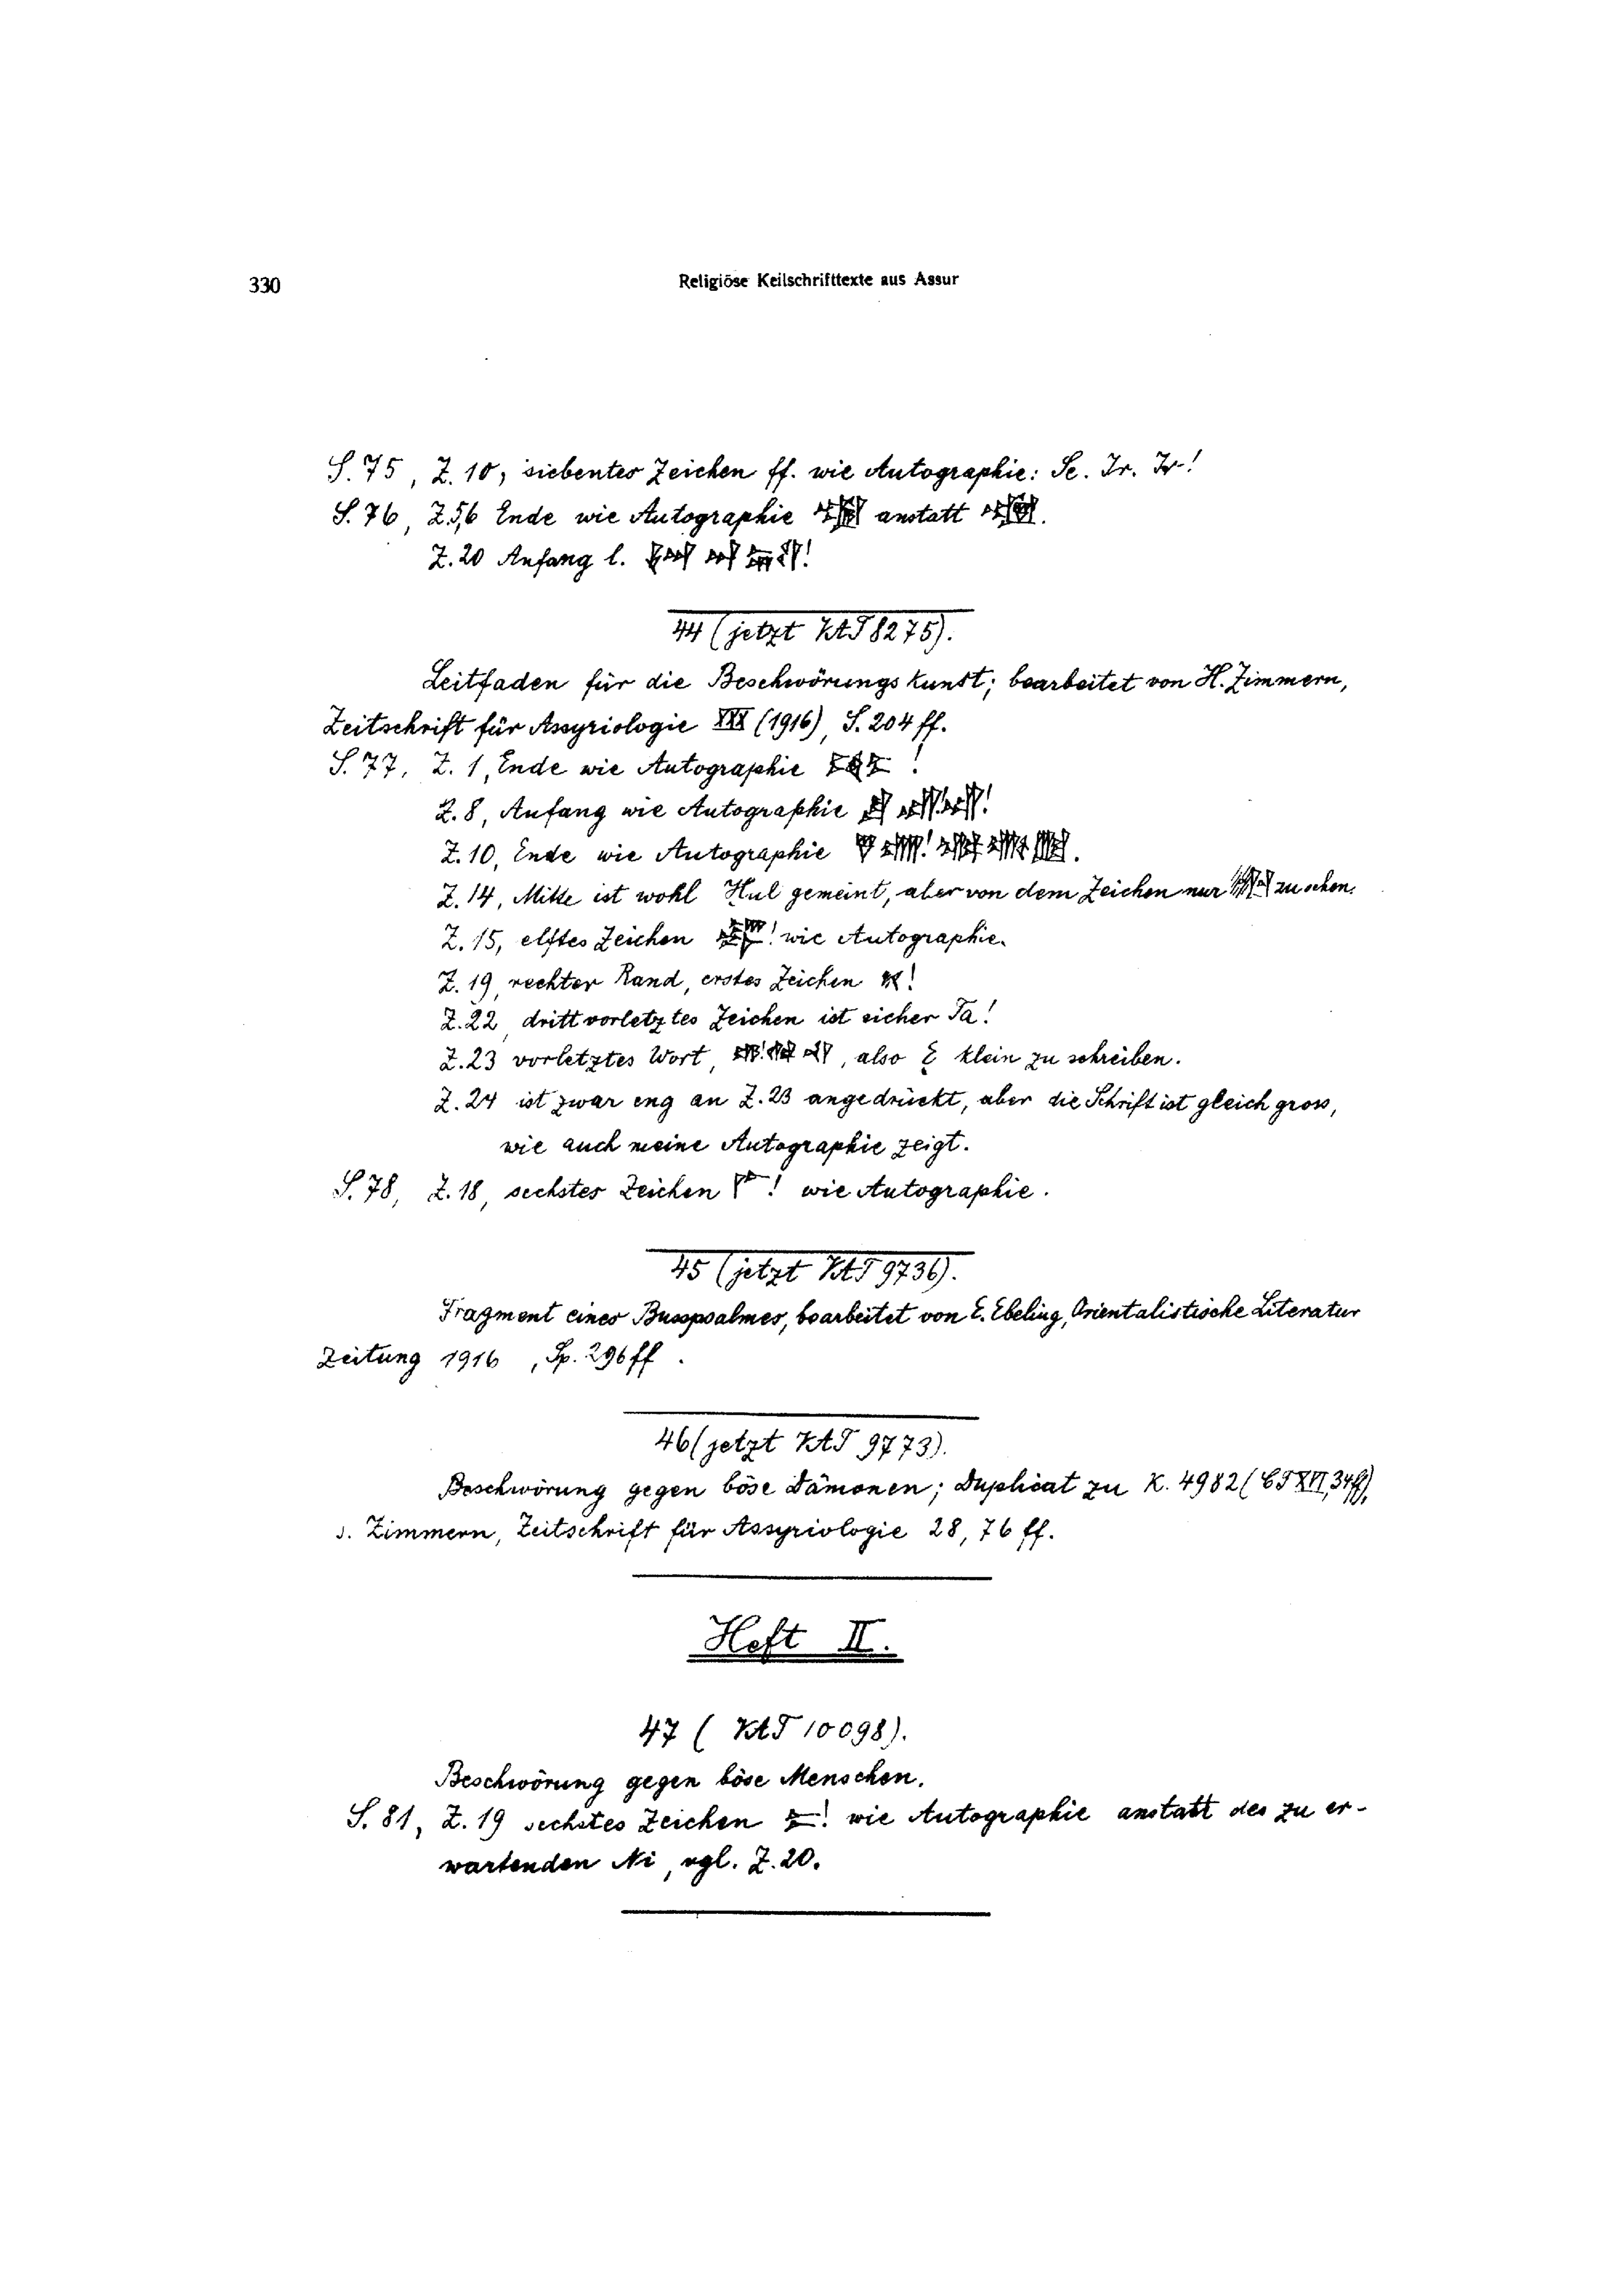 330
Religiöse Keilschrifttexte aus Assur
S. 75, Z. 10, siebentes Zeichen ff. wie Autographie: Se. Ir. Ir-!
S. 76, Z. 5,6 Ende wie Autographie anstatt .
Z. 20 Anfang l. !
44 (jetzt VAT 8275).
Leitfaden für die Beschwörungskunst; bearbeitet von H. Zimmern,
Zeitschrift für Assyriologie XXX (1916), S. 204 ff.
S. 77, Z. 1, Ende wie Autographie !
Z. 8, Anfang wie Autographie !
Z. 10, Ende wie Autographie .
Z. 14, Mitte ist wohl Ḫul gemeint, aber von dem Zeichen nur zu sehen.
Z. 15, elftes Zeichen ! wie Autographie.
Z. 19, rechter Rand, erstes Zeichen !
Z. 22, drittvorletztes Zeichen ist sicher Ta!
Z. 23 vorletztes Wort, , also E klein zu schreiben.
Z. 24 ist zwar eng an Z. 23 angedrückt, aber die Schrift ist gleich gross,
wie auch meine Autographie zeigt.
S. 78, Z. 18, sechstes Zeichen ! wie Autographie.
45 (jetzt VAT 9736).
Fragment eines Busspsalmes, bearbeitet von E. Ebeling, Orientalistische Literatur
Zeitung 1916, Sp. 296 ff.
46 (jetzt VAT 9773).
Beschwörung gegen böse Dämonen; Duplicat zu K. 4982 (CT XVI, 34 ff),
s. Zimmern, Zeitschrift für Assyriologie 28, 76 ff.
Heft II.
47 (VAT 10098).
Beschwörung gegen böse Menschen.
S. 81, Z. 19 sechstes Zeichen ! wie Autographie anstatt des zu er-
wartenden Ni, vgl. Z. 20.